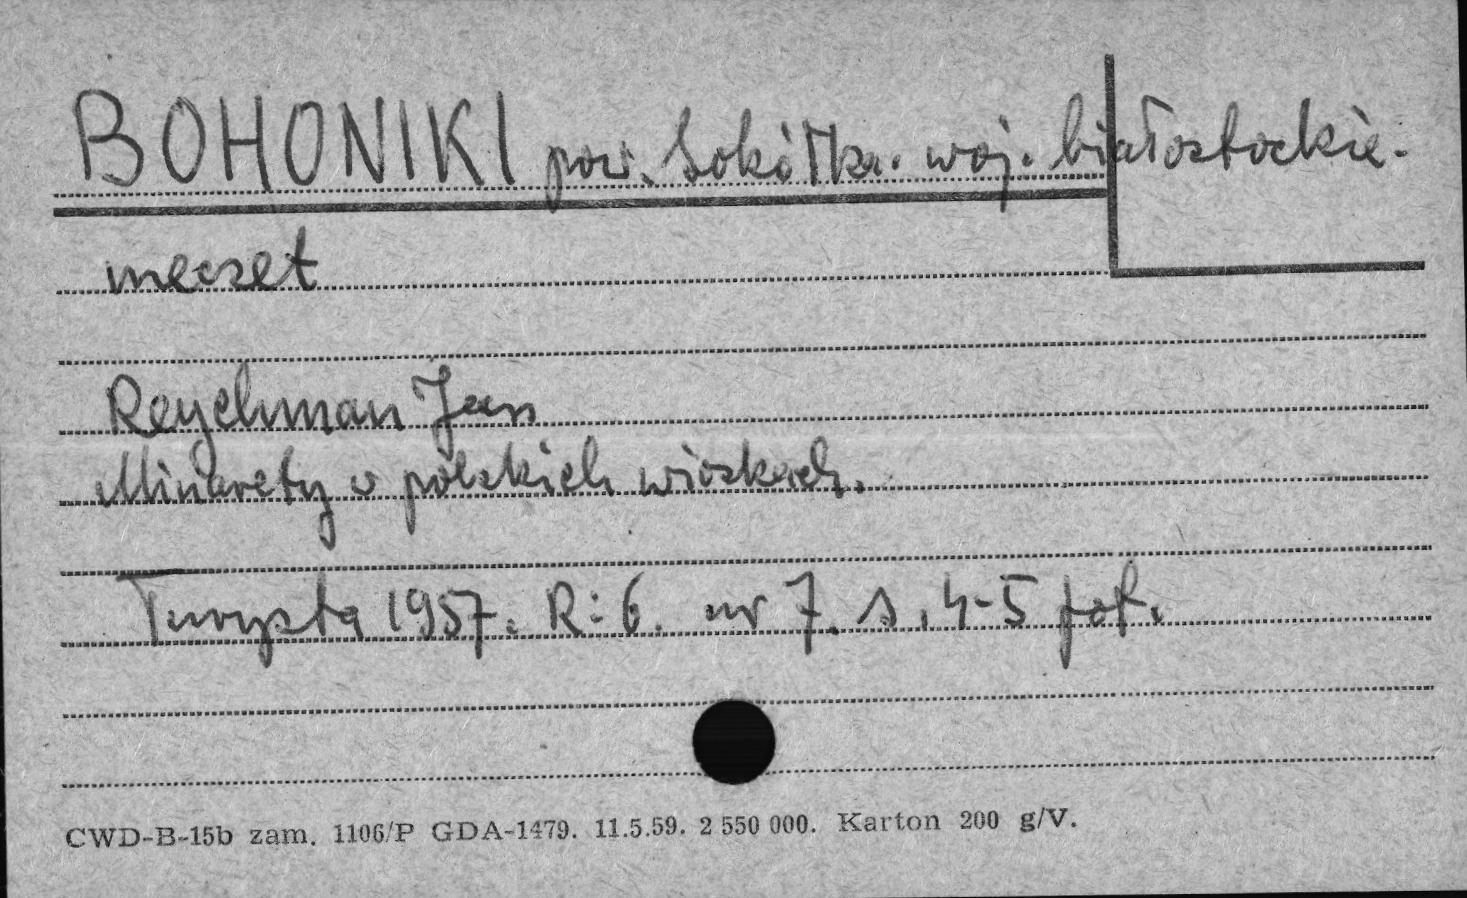 BOHONIKI pow. Sokółka. woj. białostockie.
meczet
Reychman Jan
Minarety w polskich wioskach.
Turysta 1957. R: 6. nr 7. s. 4-5 fot.
CWD-B-15b zam. 1106/P GDA-1479. 11.5.59. 2 550 000. Karton 200 g/V.